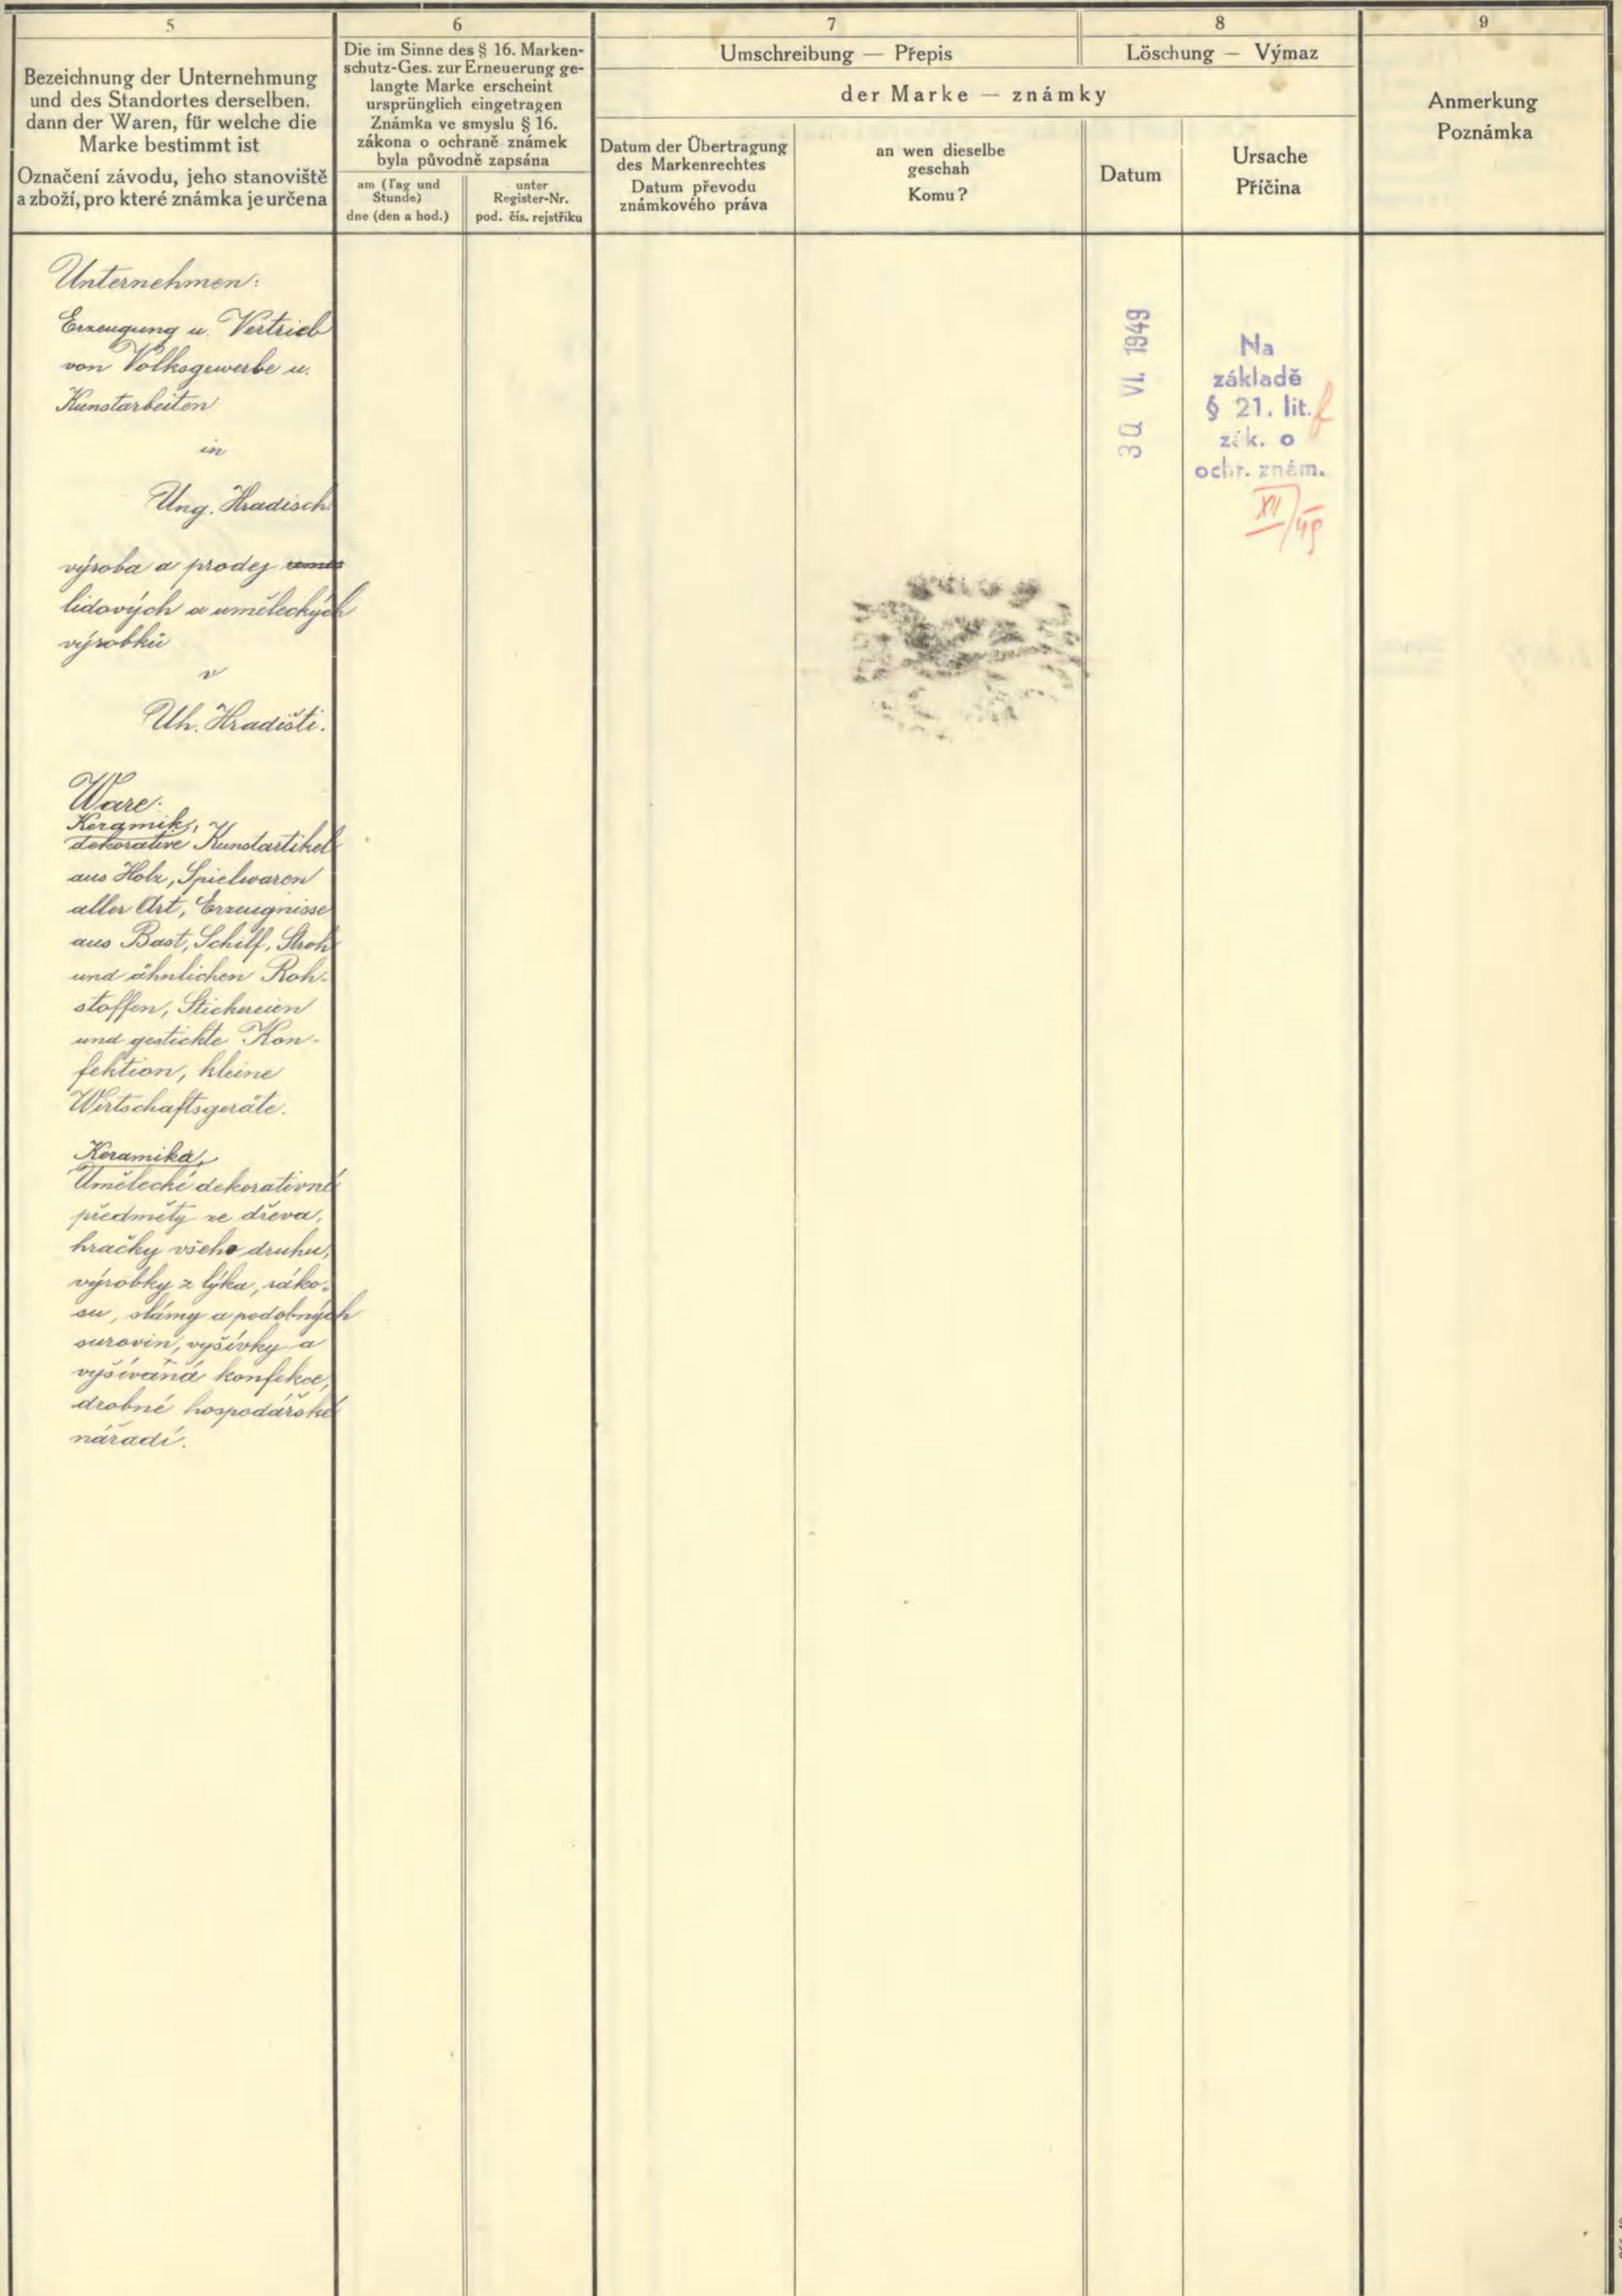 5
Bezeichnung der Unternehmung
und des Standortes derselben,
dann der Waren, für welche die
Marke bestimmt ist
Označení závodu, jeho stanoviště
a zboží, pro které známka je určena
6
Die im Sinne des § 16. Marken-
schutz-Ges. zur Erneuerung ge-
langte Marke erscheint
ursprünglich eingetragen
Známka ve smyslu § 16.
zákona o ochraně známek
byla původně zapsána
am (Tag und
Stunde)
dne (den a hod.)
unter
Register-Nr.
pod. čís. rejstříku
7
Umschreibung — Přepis
8
Löschung — Výmaz
der Marke — známky
Datum der Übertragung
des Markenrechtes
Datum převodu
známkového práva
an wen dieselbe
geschah
Komu?
Datum
Ursache
Příčina
9
Anmerkung
Poznámka
Unternehmen:
Erzeugung u. Vertrieb
von Volksgewerbe u.
Kunstarbeiten
in
Ung. Hradisch
výroba a prodej
lidových a uměleckých
výrobků
v
Uh. Hradišti.
Ware:
Keramik,
dekorative Kunstartikel
aus Holz, Spielwaren
aller Art, Erzeugnisse
aus Bast, Schilf, Stroh
und ähnlichen Roh-
stoffen, Stickereien
und gestickte Kon-
fektion, kleine
Wirtschaftsgeräte.
Keramika,
Umělecké dekorativné
předměty ze dřeva,
hračky všeho druhu,
výrobky z lýka, ráko-
su, slámy a podobných
surovin, vyšívky a
vyšívaná konfekce,
drobné hospodářské
nářadí.
30 VI. 1949
Na
základě
§ 21. lit. f
zák. o
ochr. znám.
XII/49